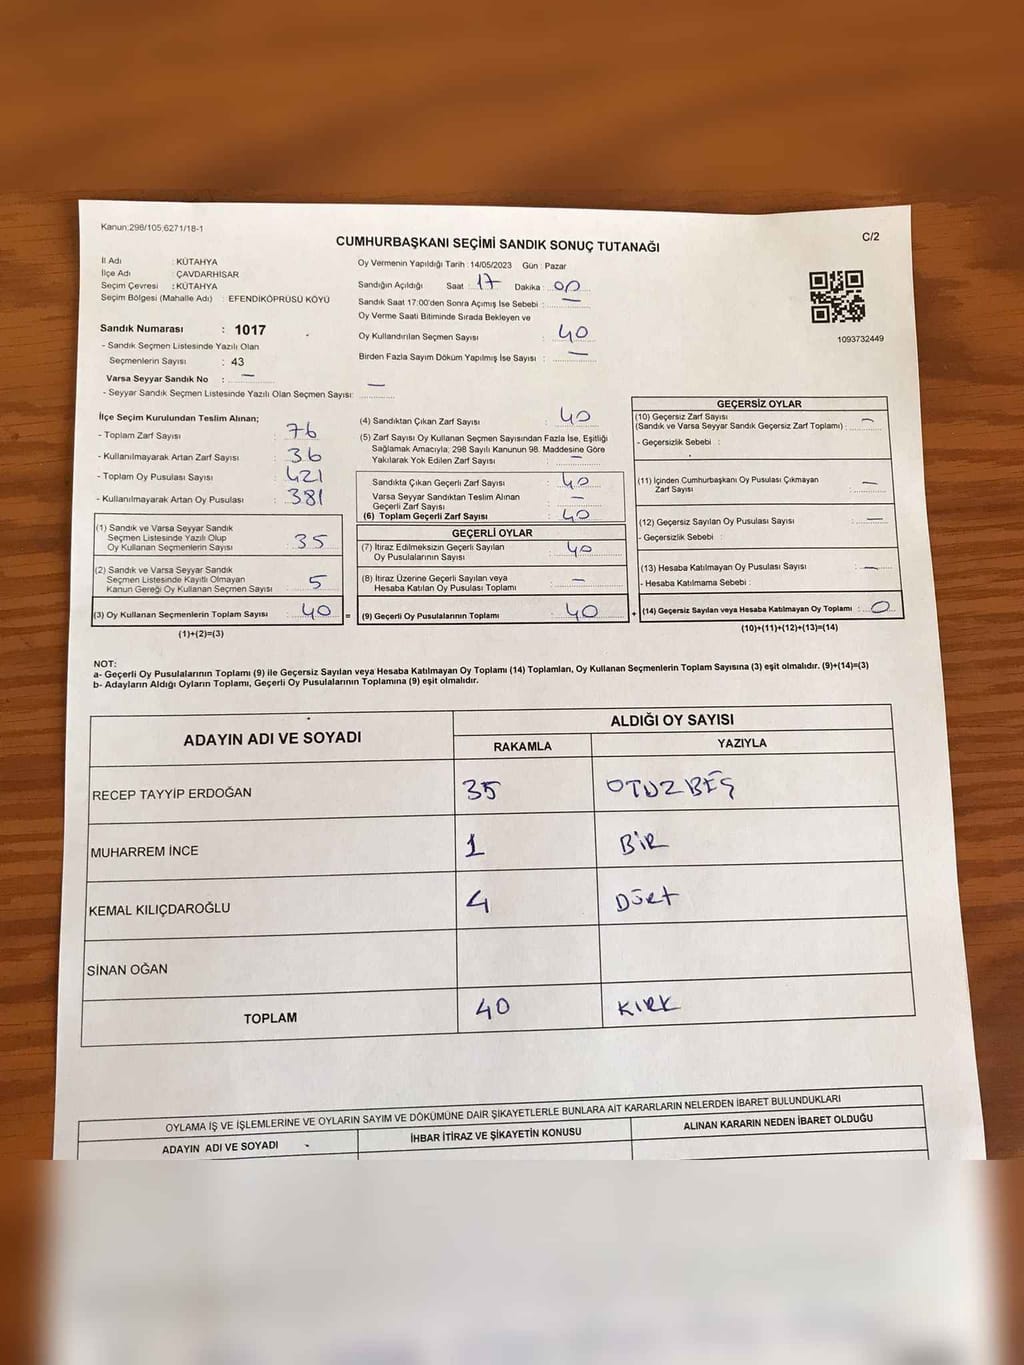 Kanun:298/105;6271/18-1
C/2
CUMHURBAŞKANI SEÇİMİ SANDIK SONUÇ TUTANAĞI
İl Adı : KÜTAHYA
İlçe Adı : ÇAVDARHİSAR
Seçim Çevresi : KÜTAHYA
Seçim Bölgesi (Mahalle Adı) : EFENDİKÖPRÜSÜ KÖYÜ
Sandık Numarası : 1017
- Sandık Seçmen Listesinde Yazılı Olan
Seçmenlerin Sayısı : 43
Varsa Seyyar Sandık No : —
- Seyyar Sandık Seçmen Listesinde Yazılı Olan Seçmen Sayısı: —
Oy Vermenin Yapıldığı Tarih : 14/05/2023 Gün : Pazar
Sandığın Açıldığı Saat : 17 Dakika : 00
Sandık Saat 17:00'den Sonra Açımış İse Sebebi : —
Oy Verme Saati Bitiminde Sırada Bekleyen ve
Oy Kullandırılan Seçmen Sayısı : 40
Birden Fazla Sayım Döküm Yapılmış İse Sayısı : —
1093732449
İlçe Seçim Kurulundan Teslim Alınan;
- Toplam Zarf Sayısı : 76
- Kullanılmayarak Artan Zarf Sayısı : 36
- Toplam Oy Pusulası Sayısı : 421
- Kullanılmayarak Artan Oy Pusulası : 381
(1) Sandık ve Varsa Seyyar Sandık
Seçmen Listesinde Yazılı Olup
Oy Kullanan Seçmenlerin Sayısı : 35
(2) Sandık ve Varsa Seyyar Sandık
Seçmen Listesinde Kayıtlı Olmayan
Kanun Gereği Oy Kullanan Seçmen Sayısı : 5
(3) Oy Kullanan Seçmenlerin Toplam Sayısı : 40 =
(1)+(2)=(3)
(4) Sandıktan Çıkan Zarf Sayısı : 40
(5) Zarf Sayısı Oy Kullanan Seçmen Sayısından Fazla İse, Eşitliği
Sağlamak Amacıyla; 298 Sayılı Kanunun 98. Maddesine Göre
Yakılarak Yok Edilen Zarf Sayısı : —
Sandıkta Çıkan Geçerli Zarf Sayısı : 40
Varsa Seyyar Sandıktan Teslim Alınan
Geçerli Zarf Sayısı : —
(6) Toplam Geçerli Zarf Sayısı : 40
GEÇERLİ OYLAR
(7) İtiraz Edilmeksizin Geçerli Sayılan
Oy Pusulalarının Sayısı : 40
(8) İtiraz Üzerine Geçerli Sayılan veya
Hesaba Katılan Oy Pusulası Toplamı : —
(9) Geçerli Oy Pusulalarının Toplamı : 40 +
GEÇERSİZ OYLAR
(10) Geçersiz Zarf Sayısı
(Sandık ve Varsa Seyyar Sandık Geçersiz Zarf Toplamı) : —
- Geçersizlik Sebebi :
(11) İçinden Cumhurbaşkanı Oy Pusulası Çıkmayan
Zarf Sayısı : —
(12) Geçersiz Sayılan Oy Pusulası Sayısı : —
- Geçersizlik Sebebi :
(13) Hesaba Katılmayan Oy Pusulası Sayısı : —
- Hesaba Katılmama Sebebi :
(14) Geçersiz Sayılan veya Hesaba Katılmayan Oy Toplamı : 0
(10)+(11)+(12)+(13)=(14)
NOT:
a- Geçerli Oy Pusulalarının Toplamı (9) ile Geçersiz Sayılan veya Hesaba Katılmayan Oy Toplamı (14) Toplamları, Oy Kullanan Seçmenlerin Toplam Sayısına (3) eşit olmalıdır. (9)+(14)=(3)
b- Adayların Aldığı Oyların Toplamı, Geçerli Oy Pusulalarının Toplamına (9) eşit olmalıdır.
ADAYIN ADI VE SOYADI
ALDIĞI OY SAYISI
RAKAMLA YAZIYLA
RECEP TAYYİP ERDOĞAN 35 OTUZBEŞ
MUHARREM İNCE 1 BİR
KEMAL KILIÇDAROĞLU 4 Dört
SİNAN OĞAN
TOPLAM 40 KIRK
OYLAMA İŞ VE İŞLEMLERİNE VE OYLARIN SAYIM VE DÖKÜMÜNE DAİR ŞİKAYETLERLE BUNLARA AİT KARARLARIN NELERDEN İBARET BULUNDUKLARI
ADAYIN ADI VE SOYADI İHBAR İTİRAZ VE ŞİKAYETİN KONUSU ALINAN KARARIN NEDEN İBARET OLDUĞU